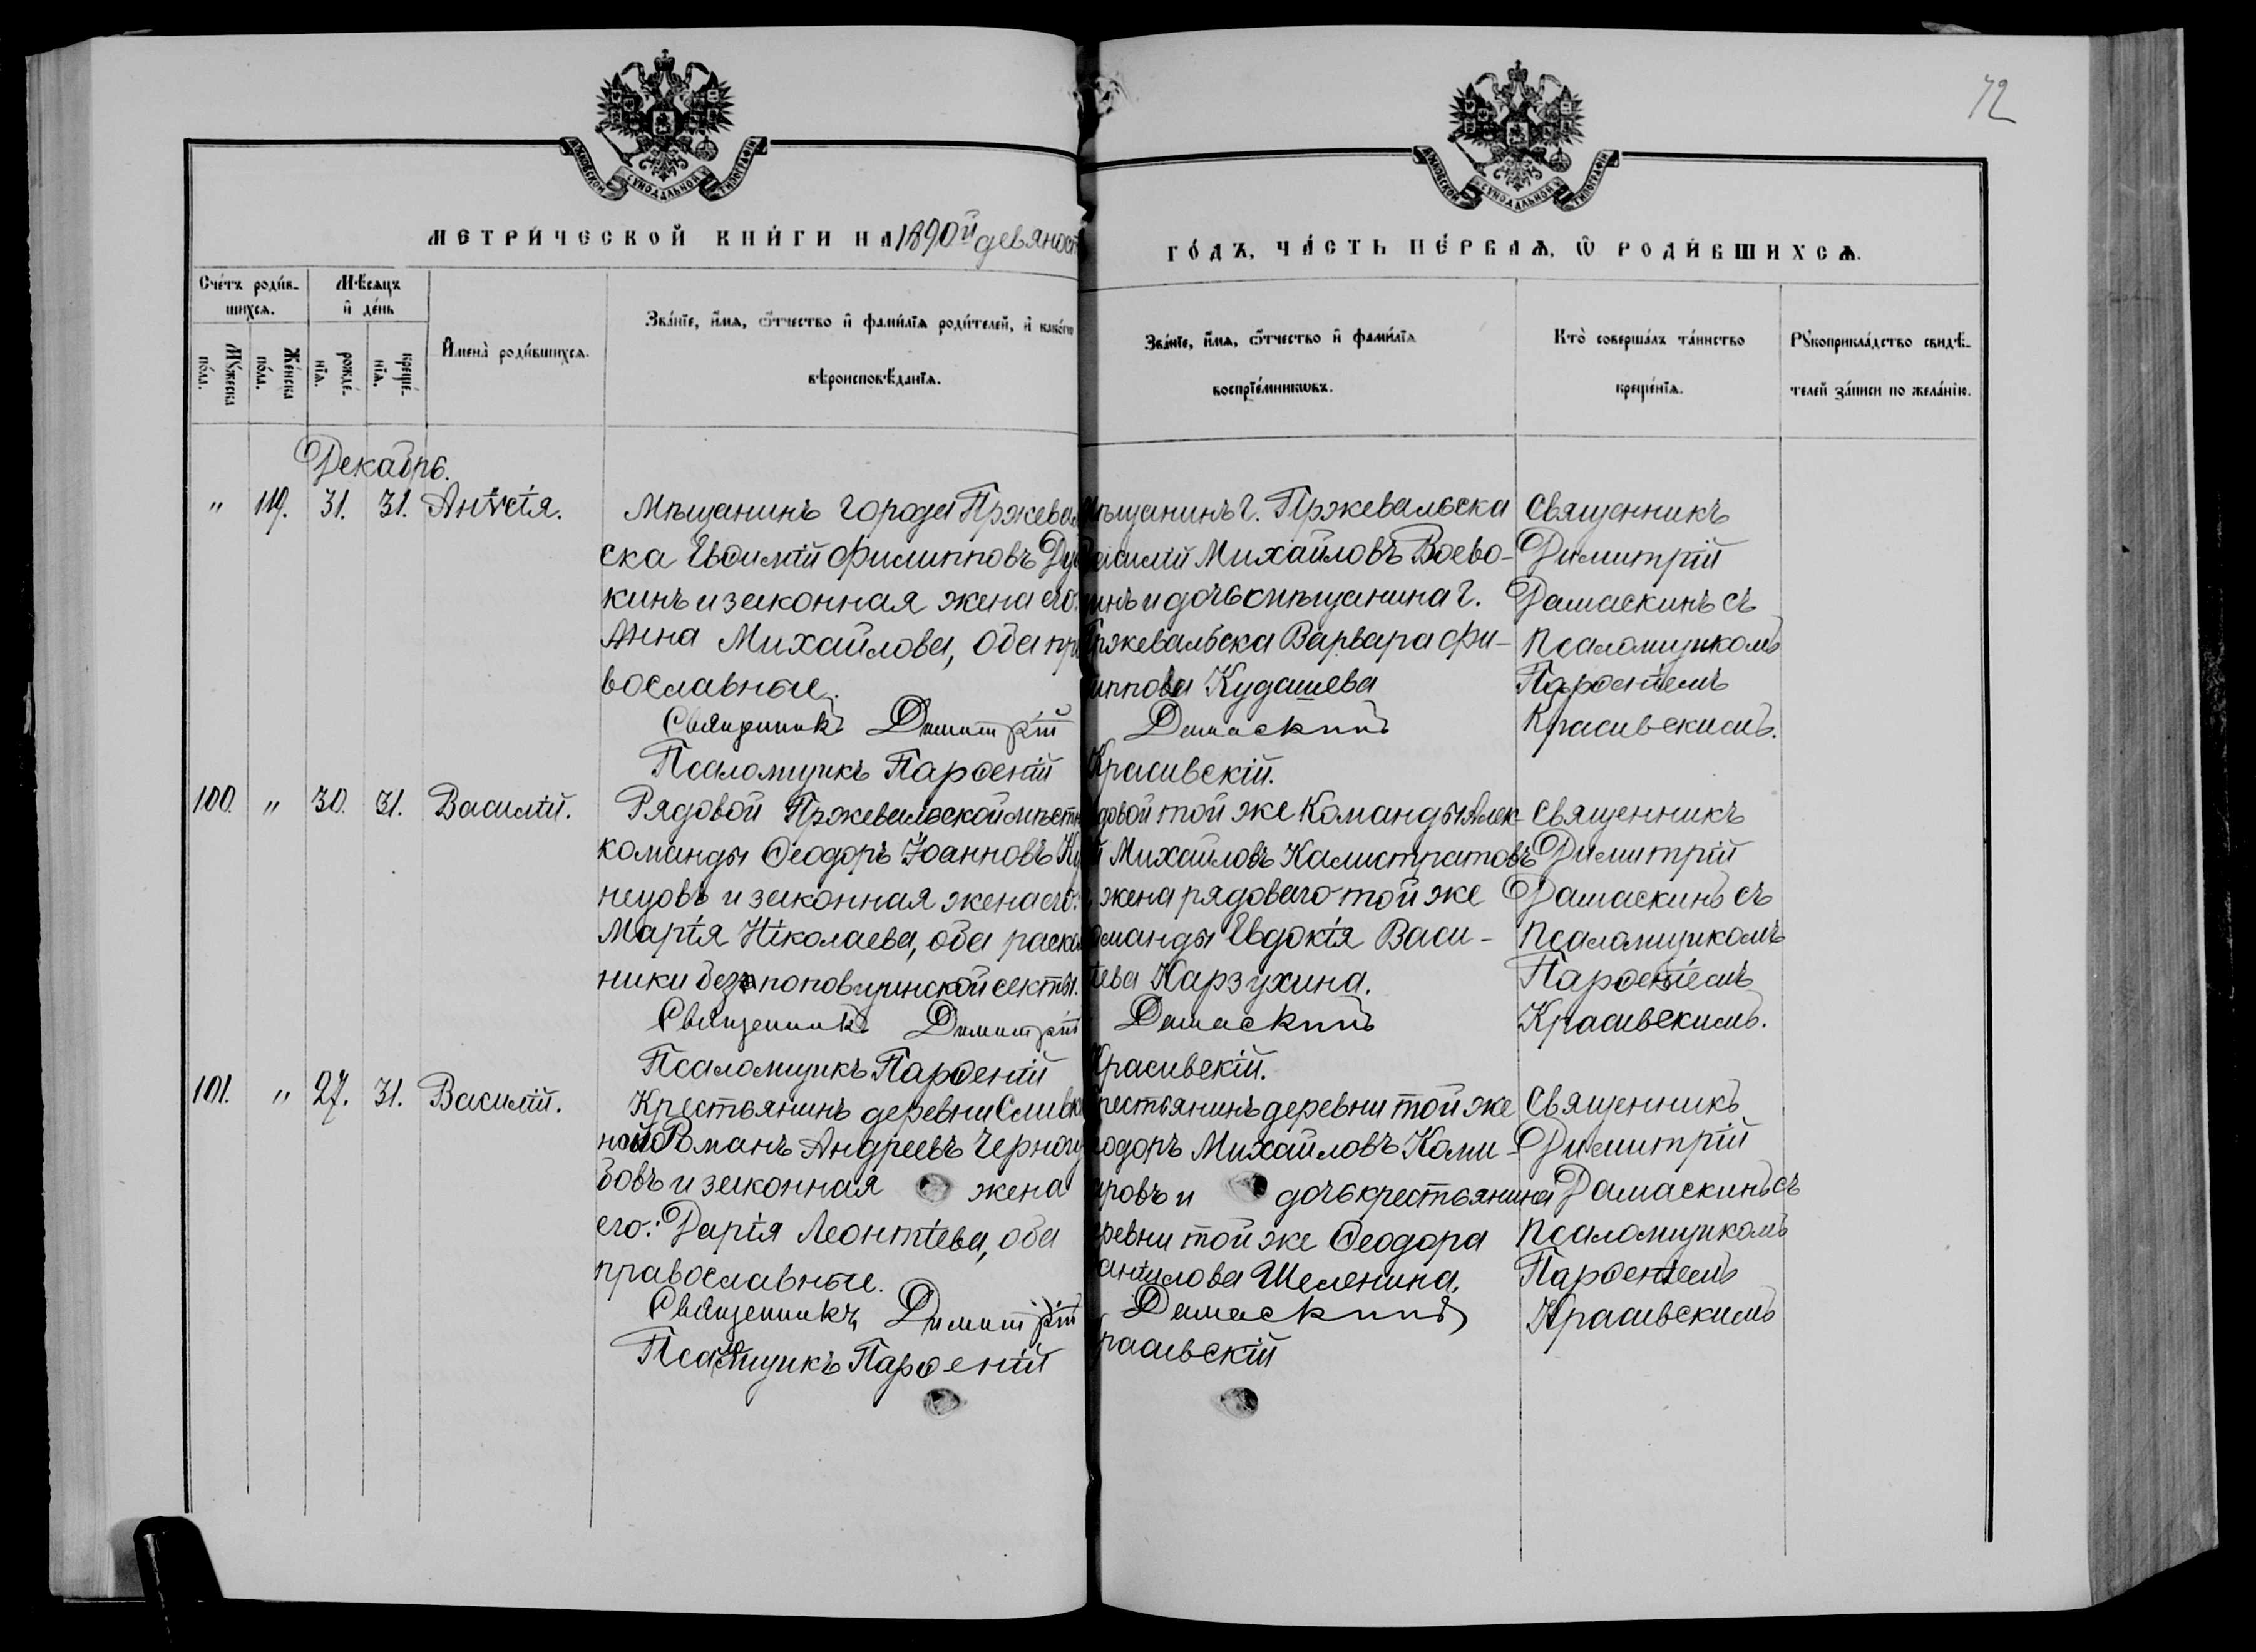 72
МЕТРИ́ЧЕСКОЙ КНИ́ГИ НА 1890й девяност
ГО́ДЪ, ЧА́СТЬ ПЕ́РВАѦ, Ѽ РОДИ́ВШИХСѦ.
Сче́тъ роди́в-
шихсѧ.
Мѣ́сѧцъ
и҆ де́нь
Му́жеска
по́ла.
Же́нска
по́ла.
рожде́-
нїѧ.
креще́-
нїѧ.
И҆мена̀ роди́вшихсѧ.
Зва́нїе, и҆́мѧ, ѻ҆́тчество и҆ фами́лїѧ роди́телей, и҆ како́гѡ
вѣроисповѣ́данїѧ.
Зва́нїе, и҆́мѧ, ѻ҆́тчество и҆ фами́лїѧ
воспрїе́мникѡвъ.
Кто̀ соверша́лъ та́инство
креще́нїѧ.
Рꙋкоприкла́дство свидѣ́-
телей за́писи по жела́нїю.
Декабрь.
" 119. 31. 31. Анѵсія.
Мѣщанинъ города Пржевал
ска Евѳимій Филипповъ Ду
кинъ и законная жена его:
Анна Михайлова, оба пра
вославные.
Священникъ Димитрій
Псаломщикъ Парѳеній
ѣщанинъ г. Пржевальска
асилій Михайловъ Воево-
инъ и дочь мѣщанина г.
Пржевальска Варвара Фи-
иппова Кудашева
Дамаскинъ
Красивскій.
Священникъ
Димитрій
Дамаскинъ съ
псаломщикомъ
Парѳеніемъ
Красивскимъ.
100. " 30. 31. Василій.
Рядовой Пржевальской мѣстн
команды Ѳеодоръ Іоанновъ Ку
нецовъ и законная жена его:
Марія Ніколаева, оба раскол
ники безпоповщинской секты.
Священникъ Димитрій
Псаломщикъ Парѳеній
довой той же команды Алек-
й Михайловъ Калистратовъ
жена рядоваго той же
оманды Евдокія Васи-
ьева Карзухина.
Дамаскинъ
Красивскій.
Священникъ
Димитрій
Дамаскинъ съ
псаломщикомъ
Парѳеніемъ
Красивскимъ.
101. " 27. 31. Василій.
Крестьянинъ деревни Сливк
ной Романъ Андреевъ Черногу
бовъ и законная жена
его: Дарія Леонтіева, оба
православные.
Священникъ Димитрій
Псаломщикъ Парѳеній
рестьянинъ деревни той же
еодоръ Михайловъ Кома-
ровъ и дочь крестьянина
ревни той же Ѳеодора
аниилова Шеленина.
Дамаскинъ
расивскій
Священникъ
Димитрій
Дамаскинъ съ
псаломщикомъ
Парѳеніемъ
Красивскимъ